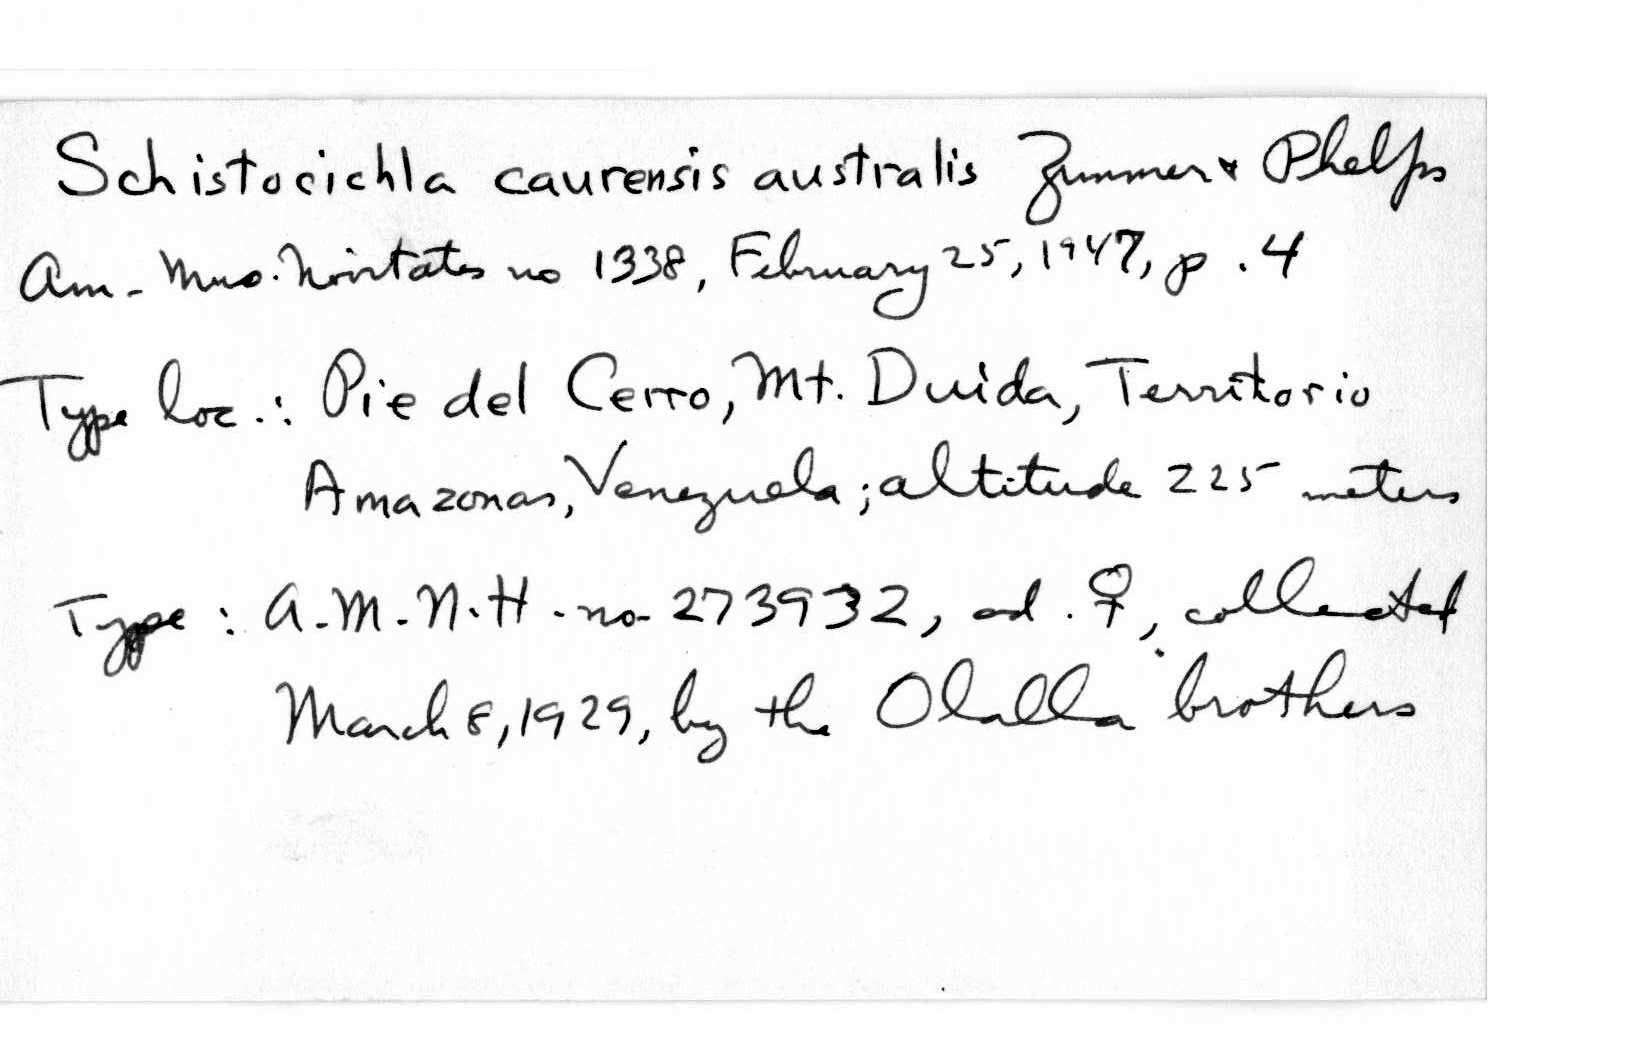 Schistocichla caurensis australis Zimmer & Phelps
Am. Mus. Novitates no 1338, February 25, 1947, p. 4
Type loc.: Pie del Cerro, Mt. Duida, Territorio
Amazonas, Venezuela; altitude 225 meters
Type: A.M.N.H. no. 273932, ad. ♀, collected
March 8, 1929, by the Olalla brothers